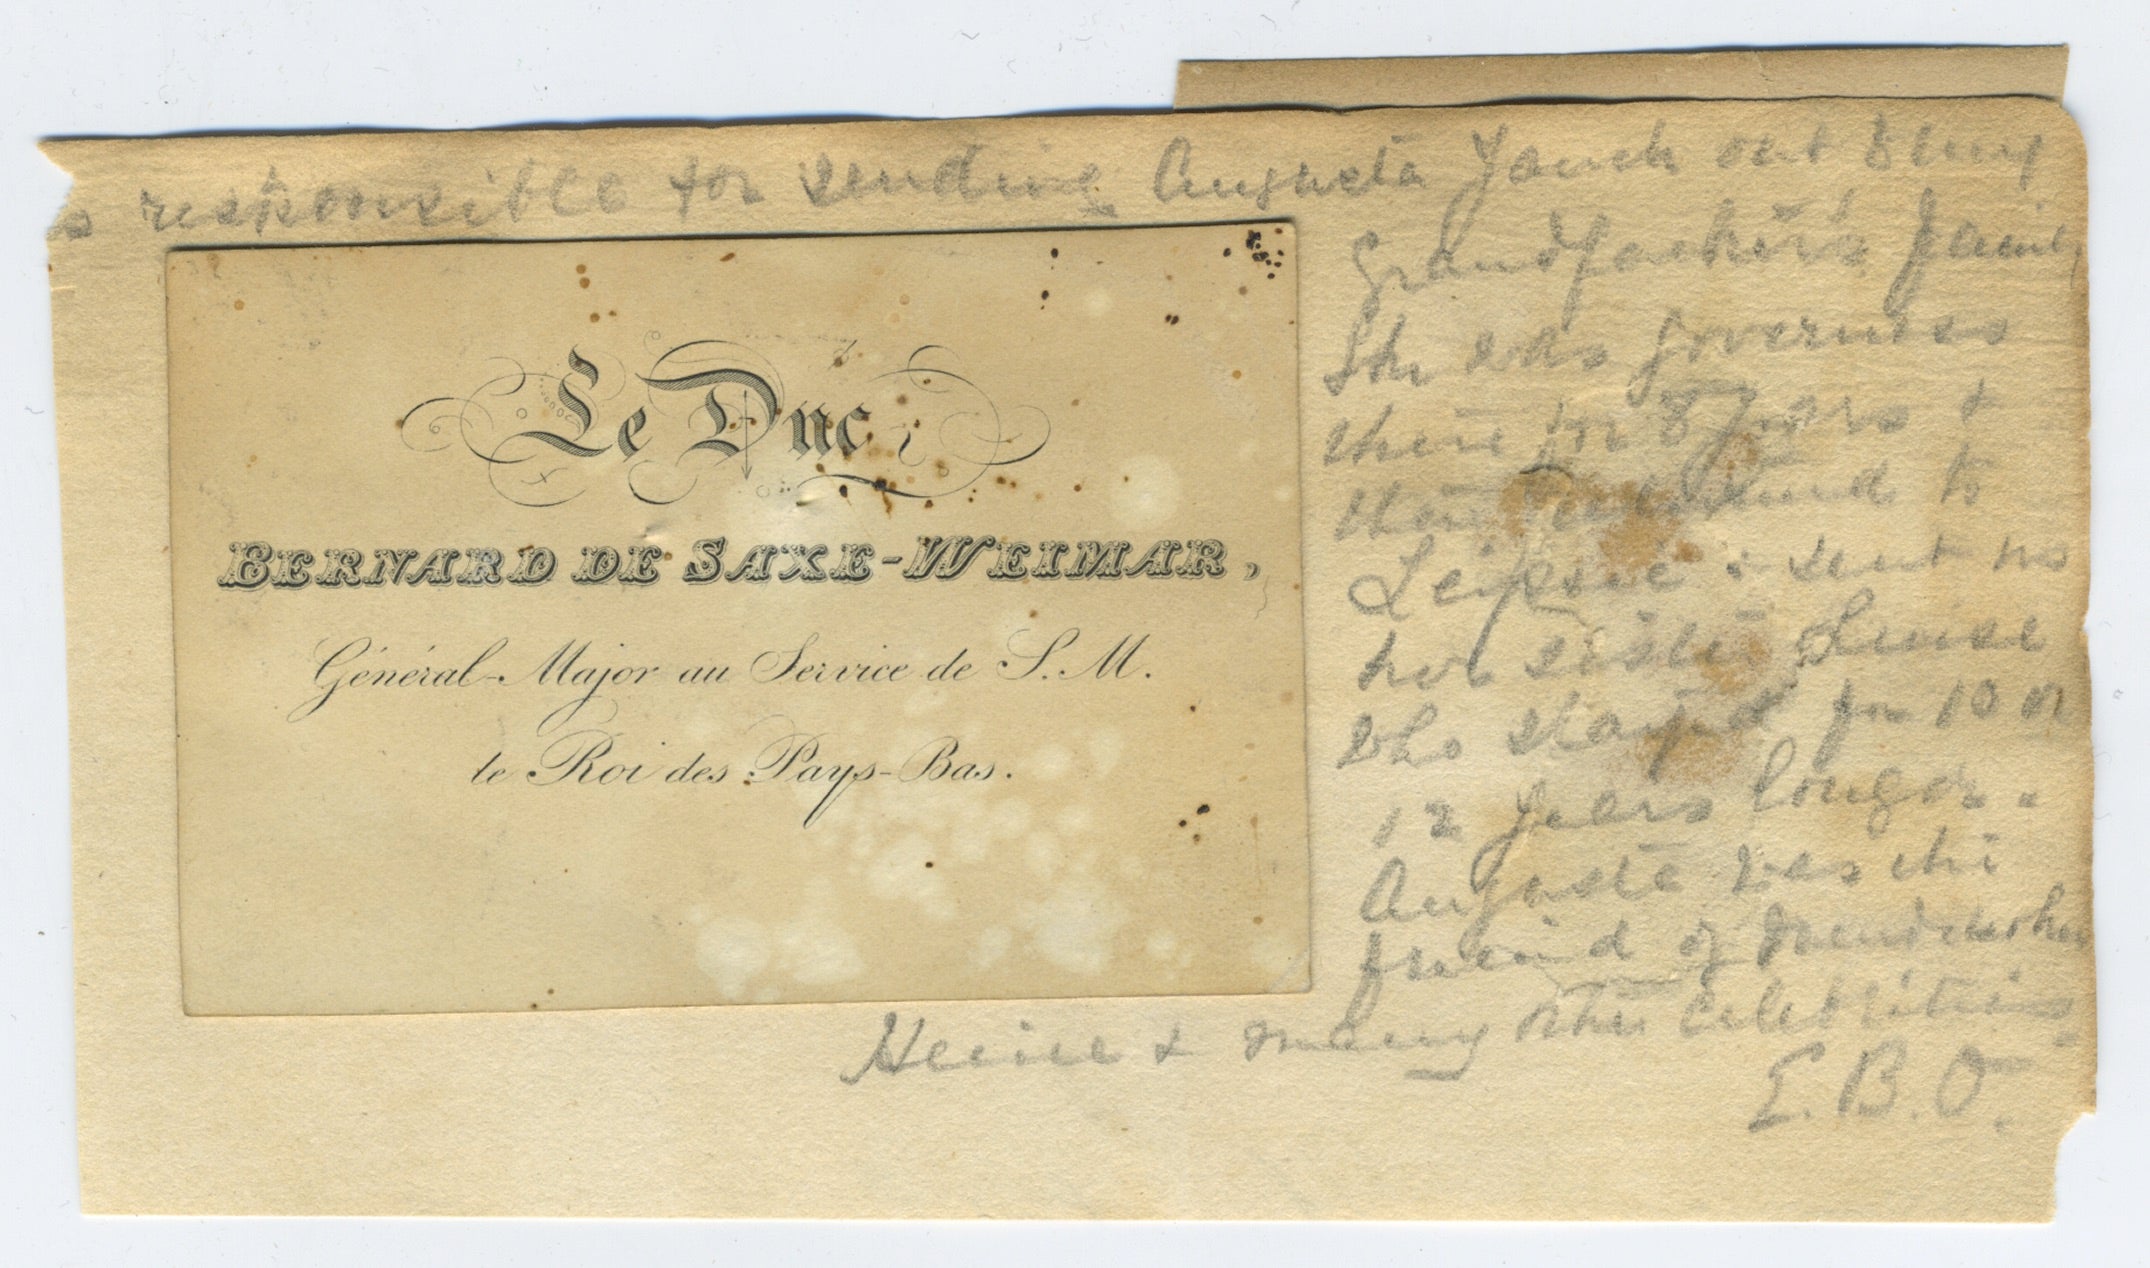 s responsible for sending Augusta Jauch out to my
Grandfather's family
She was governess
there for 8 years &
then returned to
Leipsic : sent
her sister Louise
who stayed for 10 or
12 years longer.
Augusta was the
friend of Mendelssohn
Heine & many other celebrities.
E. B. O.
Le Duc
BERNARD DE SAXE-WEIMAR,
Général-Major au Service de S. M.
le Roi des Pays-Bas.